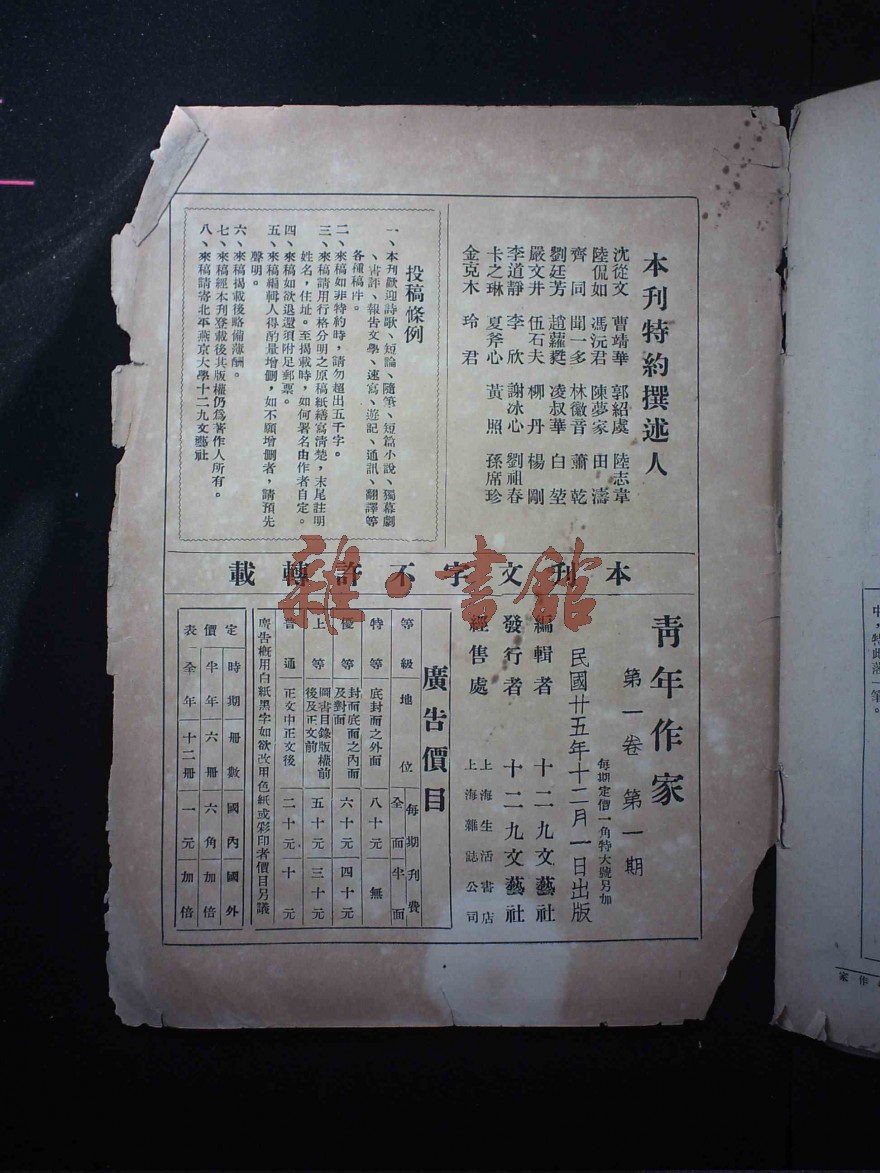 本刊特約撰述人
沈從文 曹靖華 郭紹虞 陸志韋
陸侃如 馮沅君 陳夢家 田濤
齊同 聞一多 林徽音 蕭乾
劉廷芳 趙蘿蕤 凌叔華 白堃
嚴文井 伍石夫 柳丹 楊剛
李道靜 李欣 謝冰心 劉祖春
卞之琳 夏斧心 黃照 孫席珍
金克木 玲君
投稿條例
一、本刊歡迎詩歌、短論、隨筆、短篇小說、獨幕劇
、書評、報告文學、速寫、遊記、通訊、翻譯等
各種稿件。
二、來稿如非特約時，請勿超出五千字。
三、來稿請用行格分明之原稿紙繕寫清楚，末尾註明
姓名，住址。至揭載時，如何署名由作者自定。
四、來稿如欲退還須附足郵票。
五、來稿編輯人得酌量增刪，如不願增刪者，請預先
聲明。
六、來稿揭載後略備薄酬。
七、來稿經本刊登載後其版權仍爲著作人所有。
八、來稿請寄北平燕京大學十二九文藝社
本刊文字不許轉載
青年作家
第一卷 第一期
每期定價一角特大號另加
民國廿五年十二月一日出版
編輯者 十二九文藝社
發行者 十二九文藝社
經售處 上海生活書店
上海雜誌公司
廣告價目
等級 地位 每期刊費
全面 半面
特等 底封面之外面 八十元 無
優等 封面底面之內面及對面 六十元 四十元
上等 圖書目錄版權前後及正文前 五十元 三十元
普通 正文中正文後 二十元 十元
廣告概用白紙黑字如欲改用色紙或彩印者價目另議
定價表
時期 冊數 國內 國外
半年 六冊 六角 加倍
全年 十二冊 一元 加倍
雜·書館
中，特此落一筆。
作家